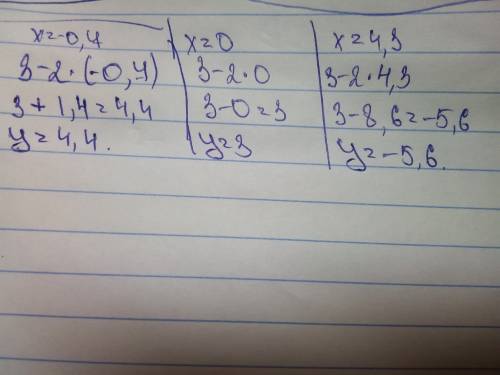 x=-0,7
3-2·(-0,7)
3+1,4=4,4
y=4,4.
x=0
3-2·0
3-0=3
y=3
x=4,3
3-2·4,3
3-8,6=-5,6
y=-5,6.